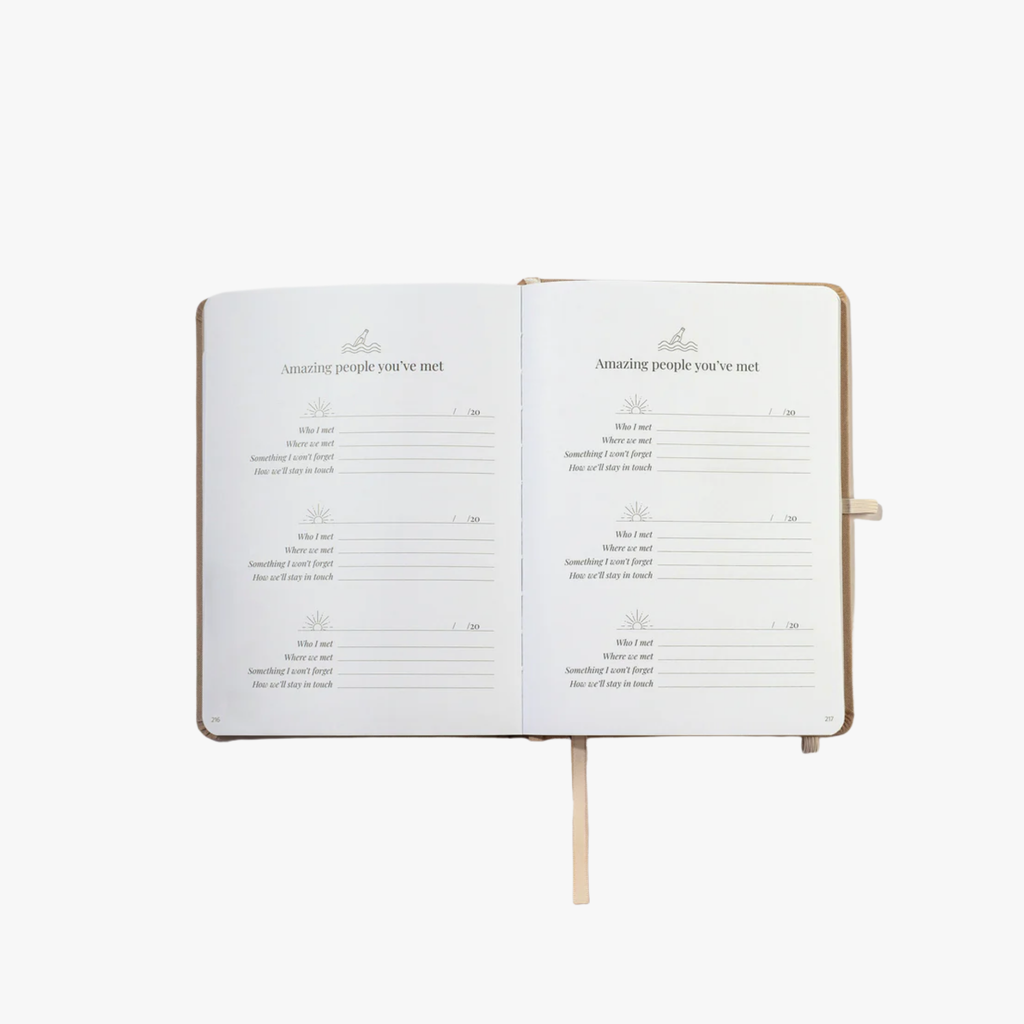 Amazing people you've met
/ /20
Who I met
Where we met
Something I won't forget
How we'll stay in touch
/ /20
Who I met
Where we met
Something I won't forget
How we'll stay in touch
/ /20
Who I met
Where we met
Something I won't forget
How we'll stay in touch
216
Amazing people you've met
/ /20
Who I met
Where we met
Something I won't forget
How we'll stay in touch
/ /20
Who I met
Where we met
Something I won't forget
How we'll stay in touch
/ /20
Who I met
Where we met
Something I won't forget
How we'll stay in touch
217